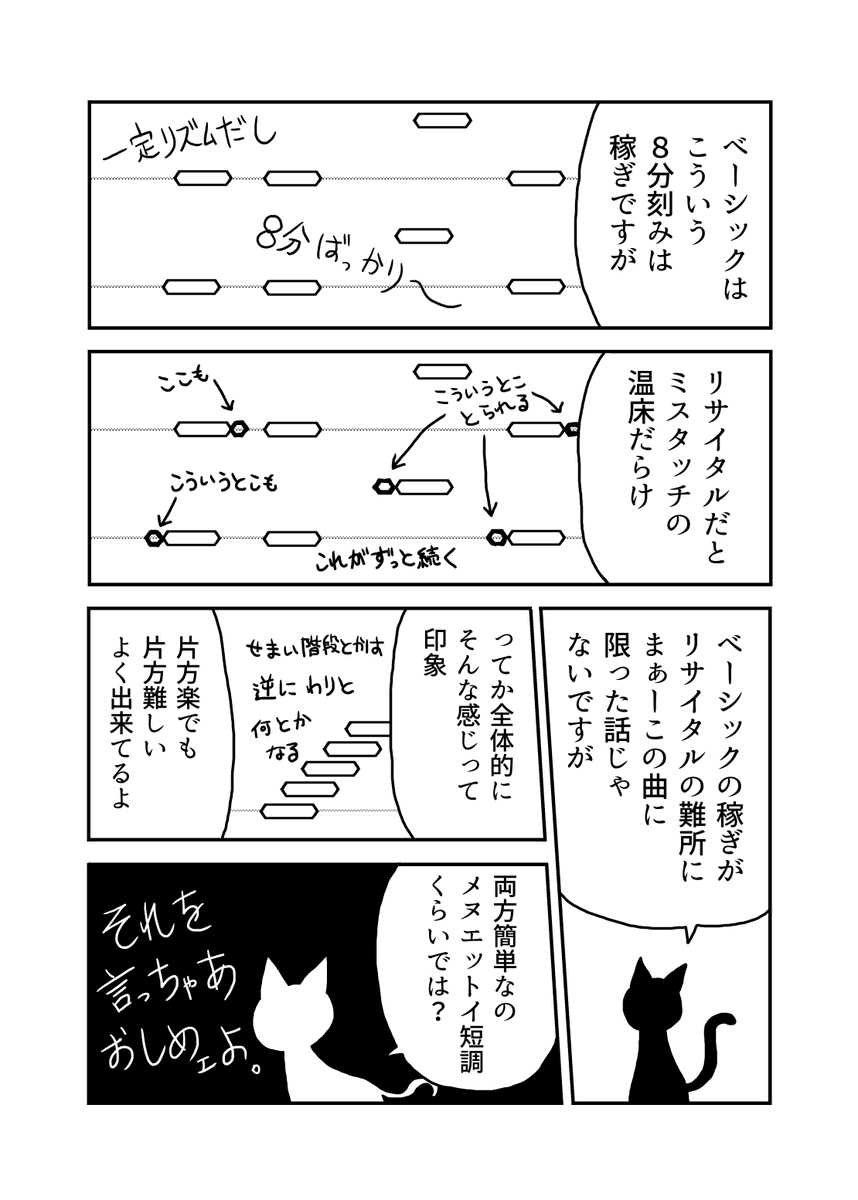 ベーシックは
こういう
８分刻みは
稼ぎですが
一定リズムだし
8分ばっかり〜
リサイタルだと
ミスタッチの
温床だらけ
こういうとこ
とられる
ここも
こういうとこも
これがずっと続く
ベーシックの稼ぎが
リサイタルの難所に
まぁーこの曲に
限った話じゃ
ないですが
ってか全体的に
そんな感じって
印象
せまい階段とかす
逆にわりと
何とか
なる
片方楽でも
片方難しい
よく出来てるよ
両方簡単なの
メヌエットイ短調
くらいでは？
それを
言っちゃあ
おしめェよ。